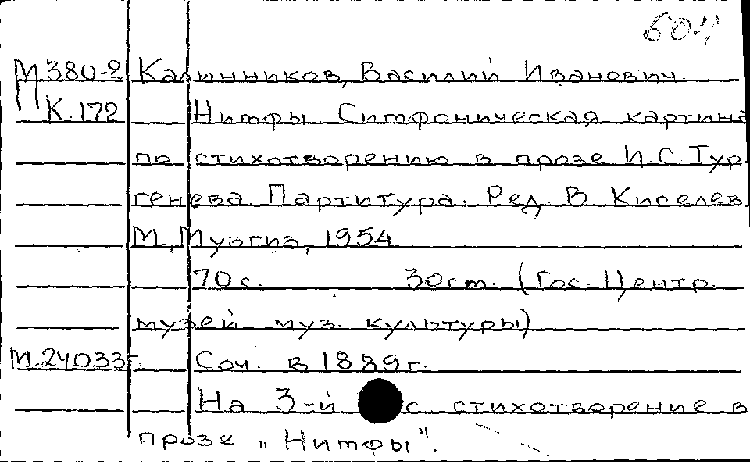 604
М.380-2 Калинников, Василий Иванович.
К.172 Нимфы. Симфоническая картина
по стихотворению в прозе И.С. Тур-
генева. Партитура. Ред. В. Киселев.
М., Музгиз, 1954.
70 с. 30 cm. (Гос. Центр.
музей муз. культуры)
М.24033г. Соч. в 1889г.
На 3-й с. стихотворение в
прозе „Нимфы".